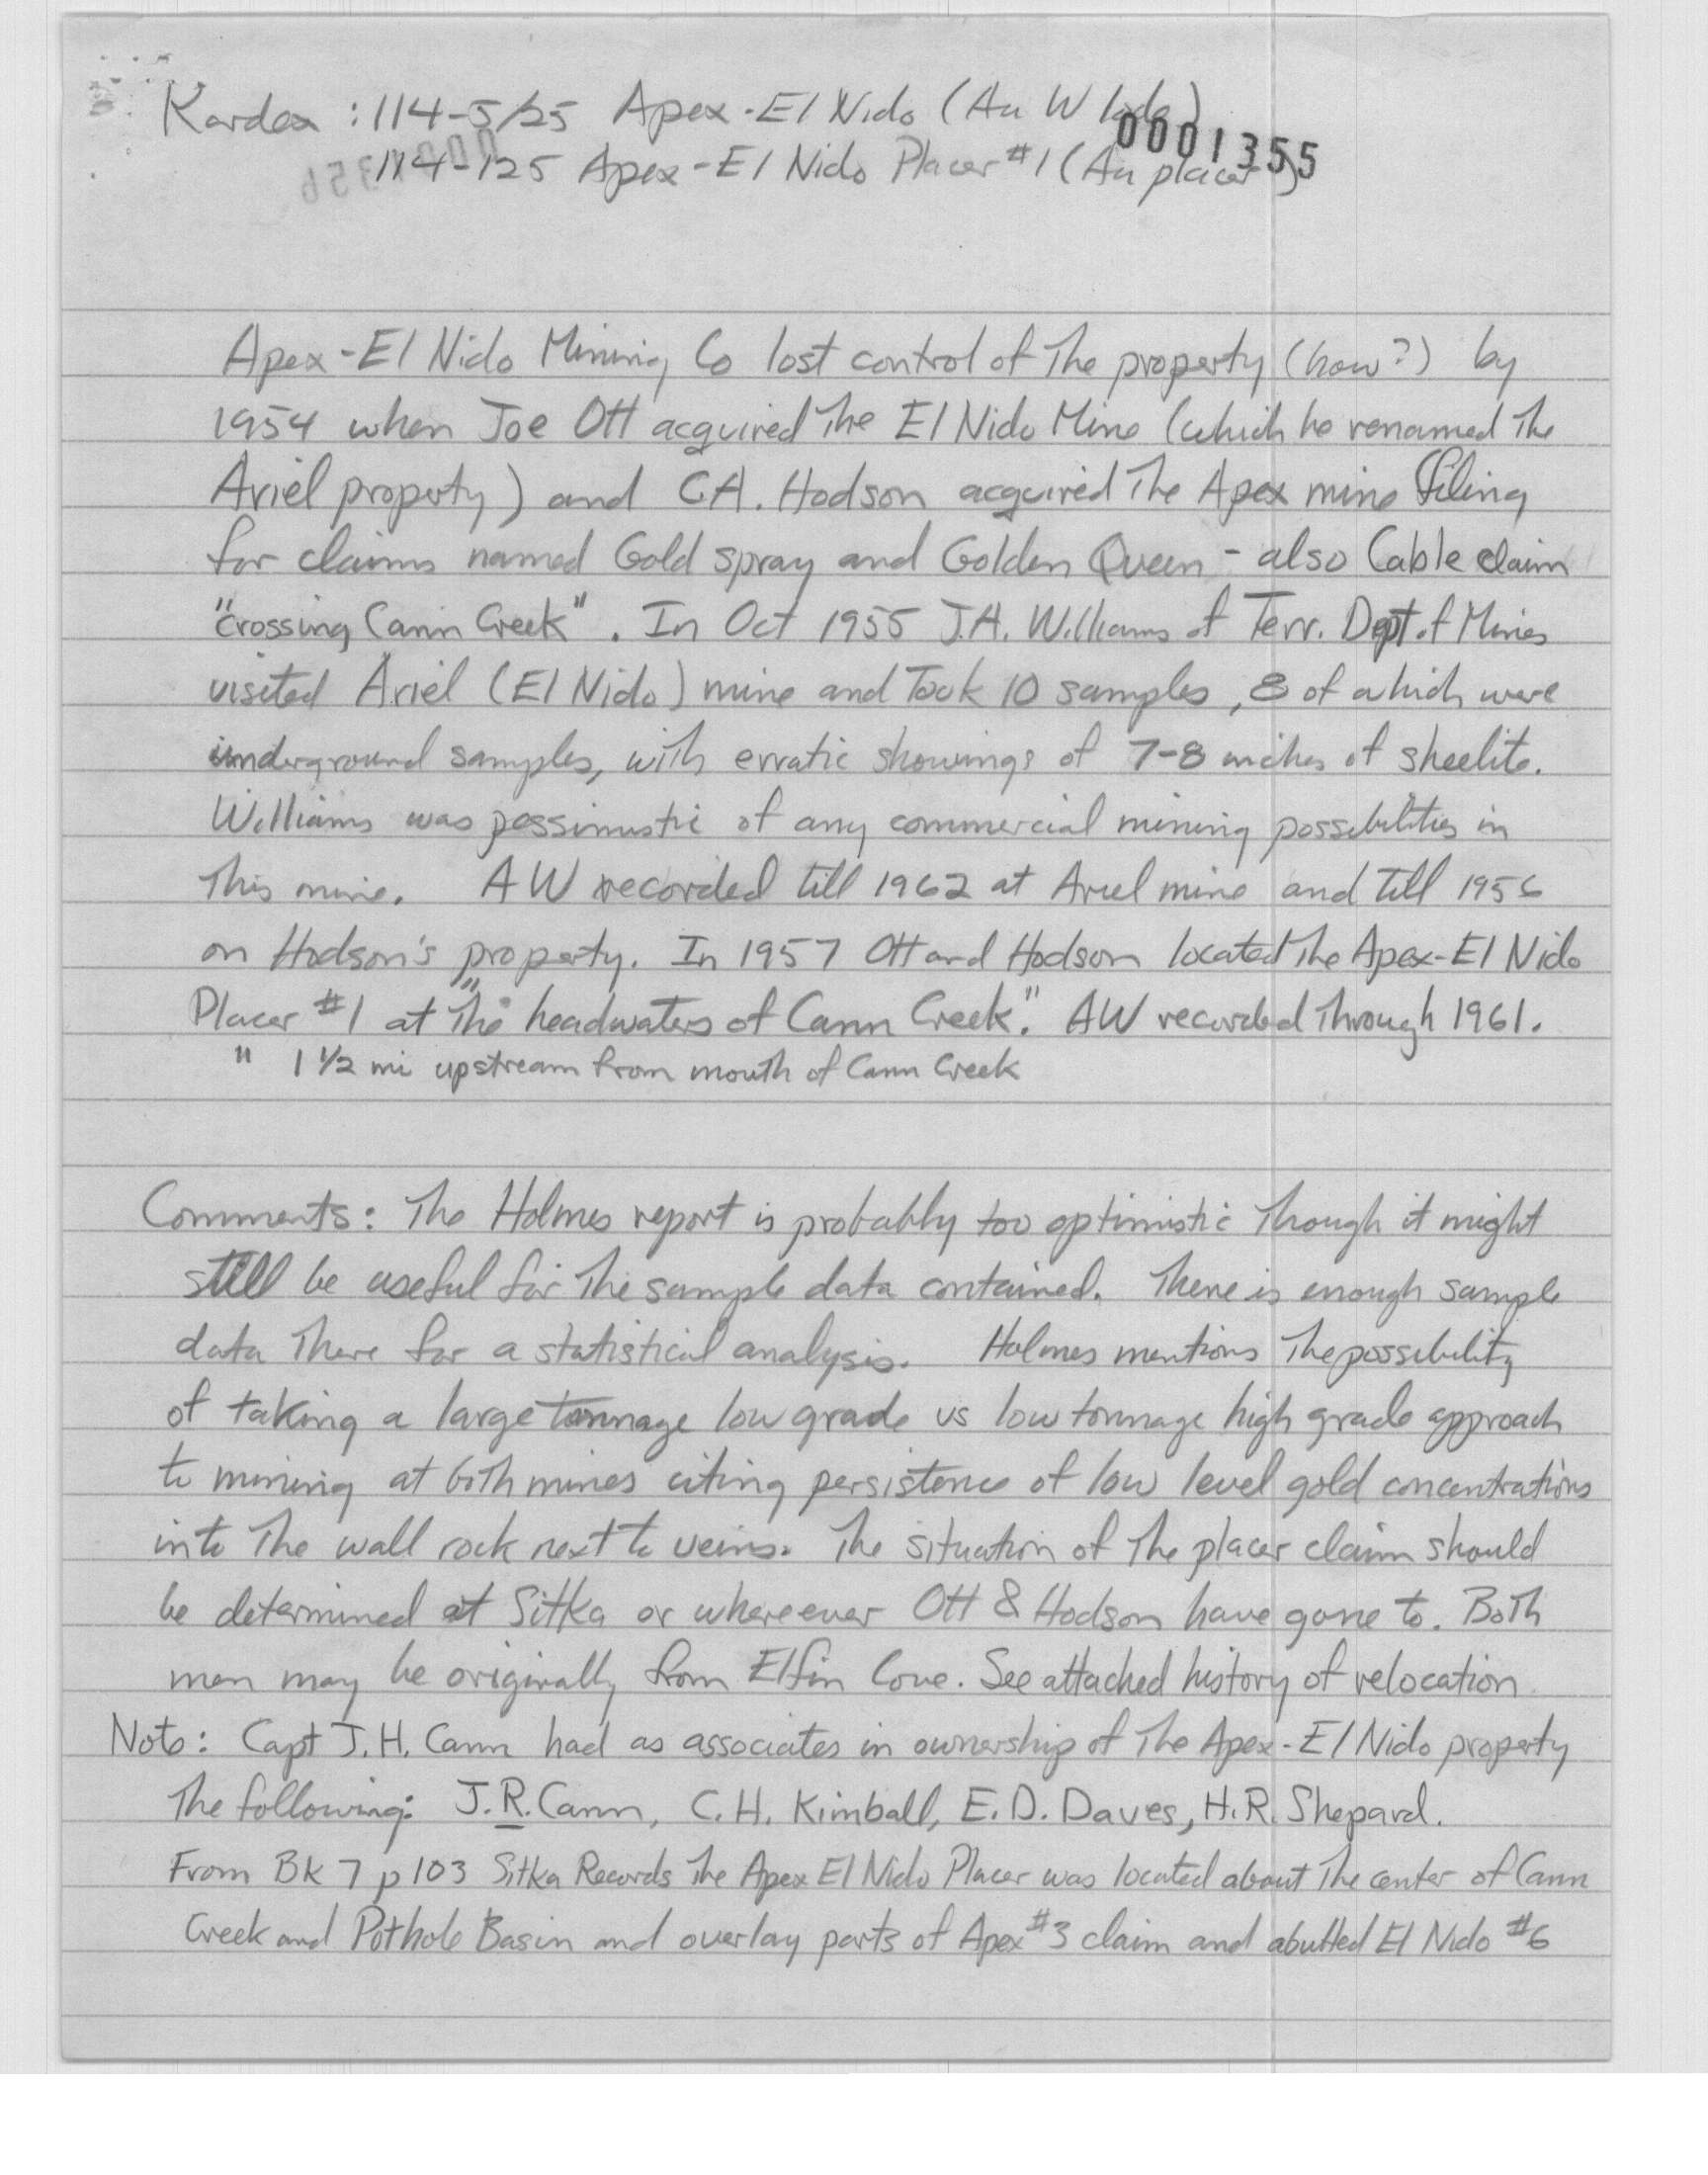 Kardex : 114-5/25 Apex-El Nido (Au W lode)
0001355
114-125 Apex-El Nido Placer #1 (Au placer)
Apex-El Nido Mining Co lost control of the property (how?) by
1954 when Joe Ott acquired the El Nido Mine (which he renamed the
Ariel property) and C.A. Hodson acquired the Apex mine filing
for claims named Gold spray and Golden Queen - also Cable claim
"crossing Cann Creek". In Oct 1955 J.A. Williams of Terr. Dept of Mines
visited Ariel (El Nido) mine and took 10 samples, 8 of which were
underground samples, with erratic showings of 7-8 inches of sheelite.
Williams was pessimistic of any commercial mining possibilities in
this mine. AW recorded till 1962 at Ariel mine and till 1956
on Hodson's property. In 1957 Ott and Hodson located the Apex-El Nido
Placer #1 at "the headwaters of Cann Creek." AW recorded through 1961.
" 1 1/2 mi upstream from mouth of Cann Creek
Comments: The Holmes report is probably too optimistic though it might
still be useful for the sample data contained. There is enough sample
data there for a statistical analysis. Holmes mentions the possibility
of taking a large tonnage low grade vs low tonnage high grade approach
to mining at both mines citing persistence of low level gold concentrations
into the wall rock next to veins. The situation of the placer claim should
be determined at Sitka or whereever Ott & Hodson have gone to. Both
men may be originally from Elfin Cove. See attached history of relocation
Note: Capt J.H. Cann had as associates in ownership of the Apex-El Nido property
the following: J.R. Cann, C.H. Kimball, E.D. Daves, H.R. Shepard.
From Bk 7 p 103 Sitka Records the Apex El Nido Placer was located about the center of Cann
Creek and Pothole Basin and overlay parts of Apex #3 claim and abutted El Nido #6